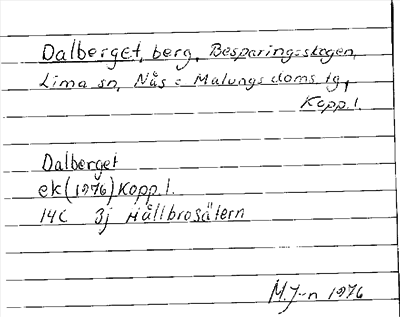 Dalberget, berg, Besparingsskogen,
Lima sn, Nås = Malungs doms. tg,
Kopp. l.
Dalberget
ek (1976) Kopp. l.
14C 3j Hållbrosätern
M. J-n 1976